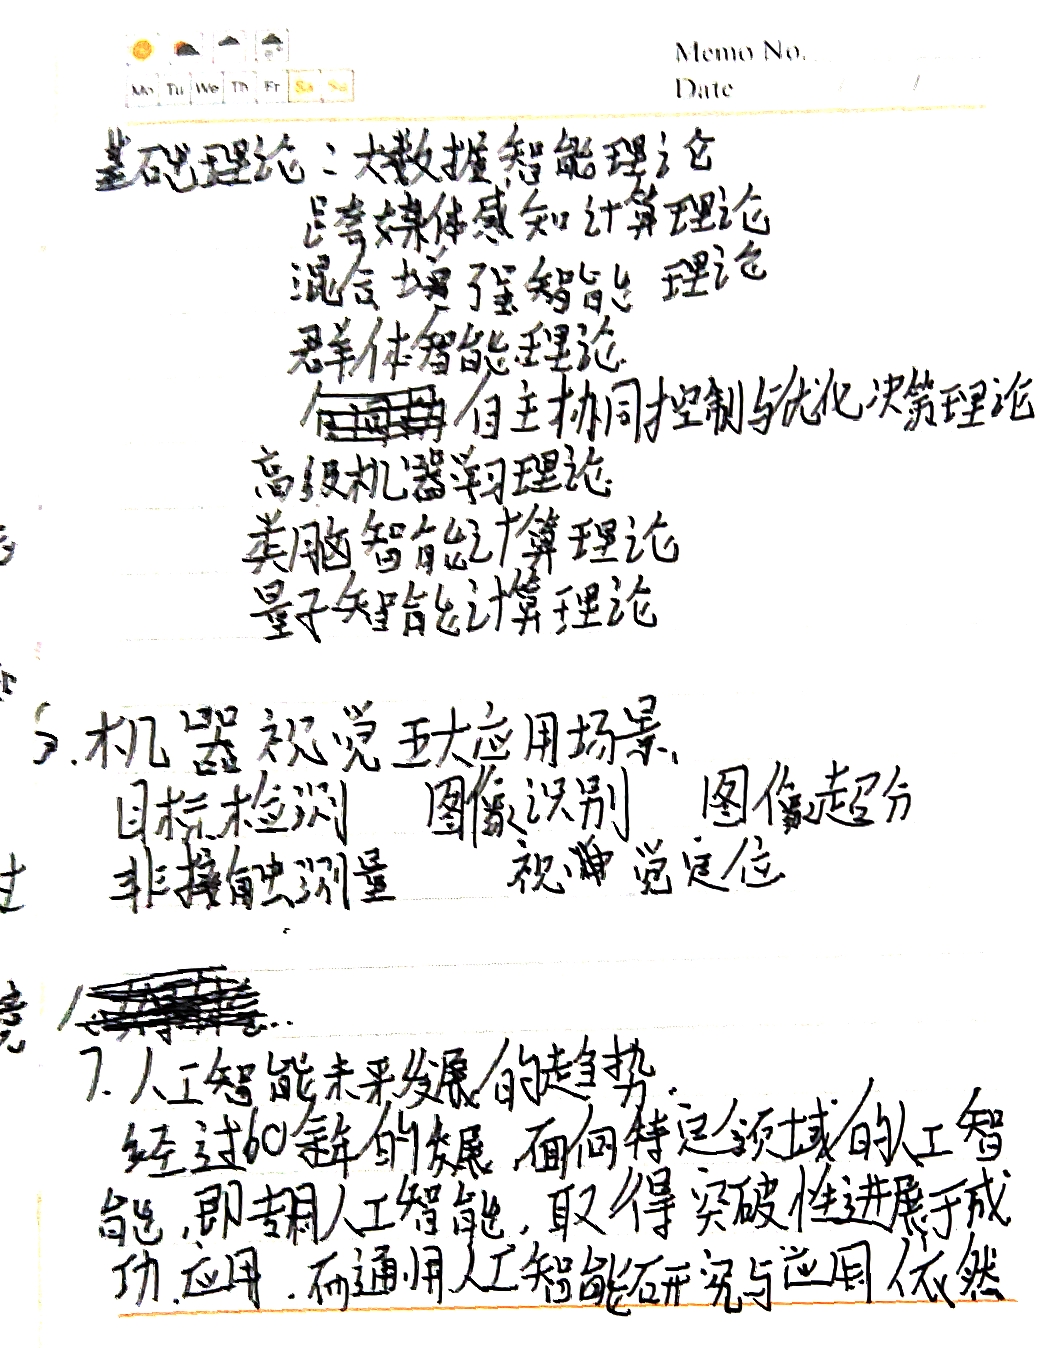 Memo No.
Mo Tu We Th Fr Sa Su
Date / /
基础理论：大数据智能理论
跨媒体感知计算理论
混合增强智能理论
群体智能理论
自主协同控制与优化决策理论
高级机器学习理论
类脑智能计算理论
量子智能计算理论
机器视觉五大应用场景、
目标检测 图像识别 图像超分
非接触测量 视觉定位
过
竟
7. 人工智能未来发展的趋势.
经过60余年的发展,面向特定领域的人工智
能,即专用人工智能,取得突破性进展于成
功应用.而通用人工智能研究与应用依然